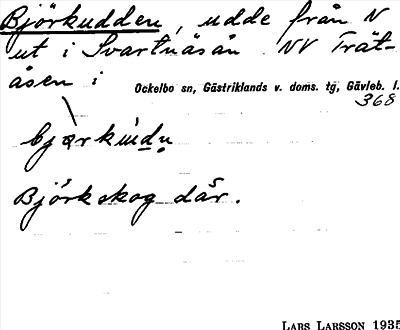 Björkudden, udde från N
ut i Svartnäsån NV Trät-
åsen i Ockelbo sn, Gästriklands v. doms. tg, Gävleb. l.
368
Björkskog där.
LARS LARSSON 1935